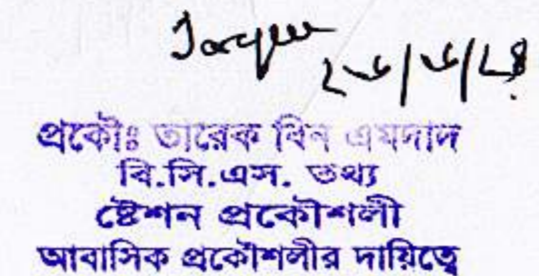 ২৬/৬/২৪
প্রকৌঃ তারেক বিন এমদাদ
বি.সি.এস. তথ্য
ষ্টেশন প্রকৌশলী
আবাসিক প্রকৌশলীর দায়িত্বে